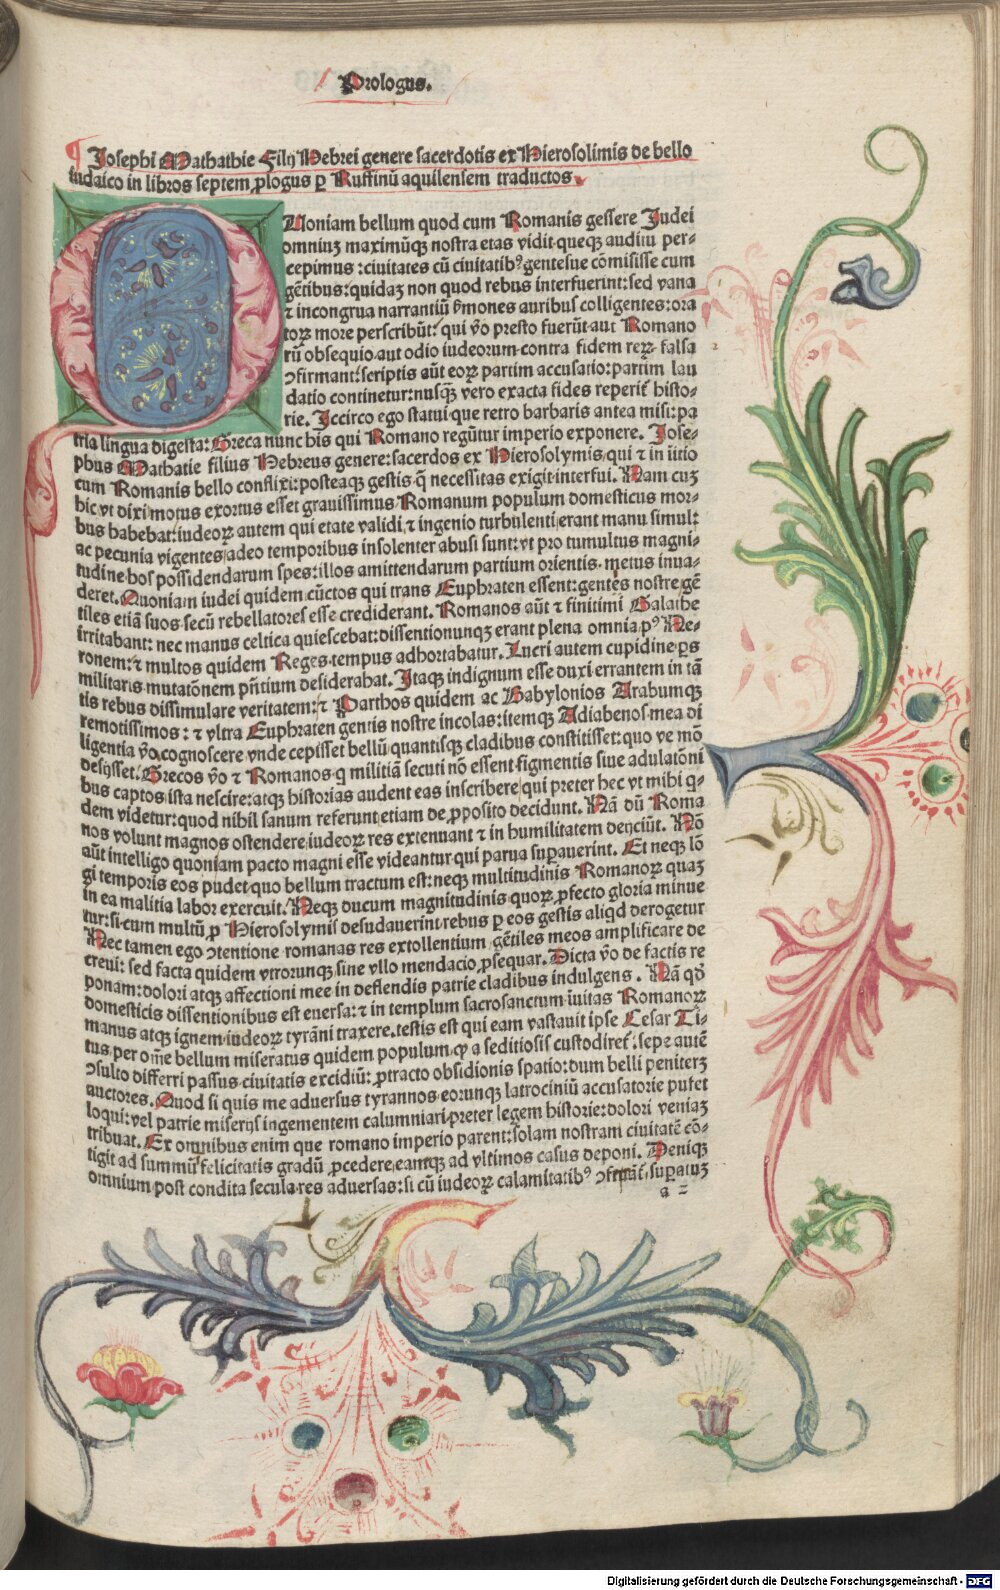 Prologus.
Josephi Mathathie Filij Hebrei genere sacerdotis ex Hierosolimis de bello
iudaico in libros septem ꝓlogus ꝑ Ruffinū aquilensem traductos.
QUoniam bellum quod cum Romanis gessere Judei
omniuꝫ maximūqꝫ nostra etas vidit queqꝫ auditu per-
cepimus : ciuitates cū ciuitatibꝰ gentesue cōmisisse cum
gētibus: quidaꝫ non quod rebus interfuerint: sed vana
⁊ incongrua narrantiū ẜmones auribus colligentes: ora
toꝝ more perscribūt: qui ṽo presto fuerūt aut Romano
rū obsequio aut odio iudeorum contra fidem reꝝ falsa
ꝯfirmant: scriptis aūt eoꝝ partim accusatio: partim lau
datio continetur: nusqꝫ̄ vero exacta fides reperit̄ histo-
rie. Iccirco ego statui que retro barbaris antea misi: pa
tria lingua digesta: Greca nunc his qui Romano regūtur imperio exponere. Jose-
phus Mathatie filius Hebreus genere: sacerdos ex Hierosolymis, qui ⁊ in iitio
cum Romanis bello conflixi: posteaqꝫ gestis q̄ necessitas exigit interfui. Nam cuꝫ
hic vt dixi motus exortus esset grauissimus Romanum populum domesticus mor-
bus habebat: iudeoꝝ autem qui etate validi ⁊ ingenio turbulenti erant manu simul:
ac pecunia vigentes adeo temporibus insolenter abusi sunt: vt pro tumultus magni-
tudine hos possidendarum spes: illos amittendarum partium orientis metus inua-
deret. Quoniam iudei quidem cūctos qui trans Euphraten essent: gentes nostre gē
tiles etiā suos secū rebellatores esse crediderant. Romanos aūt ⁊ finitimi Galathe
irritabant: nec manus celtica quiescebat: dissentionumqꝫ erant plena omnia pꝰ Ne-
ronem: ⁊ multos quidem Reges tempus adhortabatur. Lucri autem cupidine ꝑs
militaris mutatōnem pn̄tium desiderabat. Itaqꝫ indignum esse duxi errantem in tā
tis rebus dissimulare veritatem: ⁊ Parthos quidem ac Babylonios Arabumqꝫ
remotissimos : ⁊ vltra Euphraten gentis nostre incolas: itemqꝫ Adiabenos mea di
ligentia ṽo cognoscere vnde cepisset bellū quantisqꝫ cladibus constitisset: quo ve mō
desijsset. Grecos ṽo ⁊ Romanos q militiā secuti nō essent figmentis siue adulatōni
bus captos ista nescire: atqꝫ historias audent eas inscribere qui preter hec vt mihi q-
dem videtur: quod nihil sanum referunt etiam de ꝓposito decidunt. Nā dū Roma
nos volunt magnos ostendere iudeoꝝ res extenuant ⁊ in humilitatem deijciūt. Nō
aūt intelligo quoniam pacto magni esse videantur qui parua suꝑauerint. Et neqꝫ lō
gi temporis eos pudet quo bellum tractum est: neqꝫ multitudinis Romanoꝝ quaꝫ
in ea malitia labor exercuit. Neqꝫ ducum magnitudinis quoꝝ ꝓfecto gloria minue
tur: si cum multū ꝓ Hierosolymis desudauerint rebus ꝑ eos gestis aliqd derogetur
Nec tamen ego ꝯtentione romanas res extollentium gētiles meos amplificare de
creui: sed facta quidem vtrorumqꝫ sine vllo mendacio ꝓsequar. Dicta ṽo de factis re
ponam: dolori atqꝫ affectioni mee in deflendis patrie cladibus indulgens . Nā qd̄
domesticis dissentionibus est euersa: ⁊ in templum sacrosanctum iuitas Romanoꝝ
manus atqꝫ ignem iudeoꝝ tyrāni traxere. testis est qui eam vastauit ipse Cesar Ti-
tus, per om̄e bellum miseratus quidem populum, ꝙ a seditiosis custodiret̄. sepe autē
ꝯsulto differri passus ciuitatis excidiū: ꝓtracto obsidionis spatio: dum belli peniterꝫ
auctores. Quod si quis me aduersus tyrannos eorumqꝫ latrociniū accusatorie putet
loqui: vel patrie miserijs ingementem calumniari: preter legem historie: dolori veniaꝫ
tribuat. Ex omnibus enim que romano imperio parent: solam nostram ciuitatē cō-
tigit ad summū felicitatis gradū ꝓcedere, eamqꝫ ad vltimos casus deponi. Deniqꝫ
omnium post condita secula res aduersas: si cū iudeoꝝ calamitatibꝰ suꝑatuꝫ
a 2
Digitalisierung gefördert durch die Deutsche Forschungsgemeinschaft - DFG